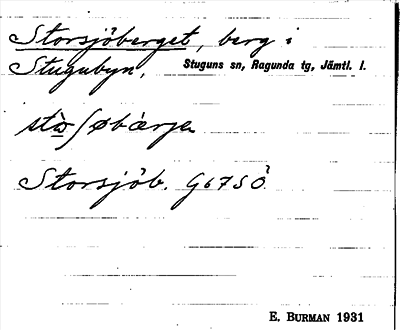 Storsjöberget, berg i
Stugubyn. Stuguns sn, Ragunda tg, Jämtl. l.
Storsjöb. G67SÖ
E. BURMAN 1931